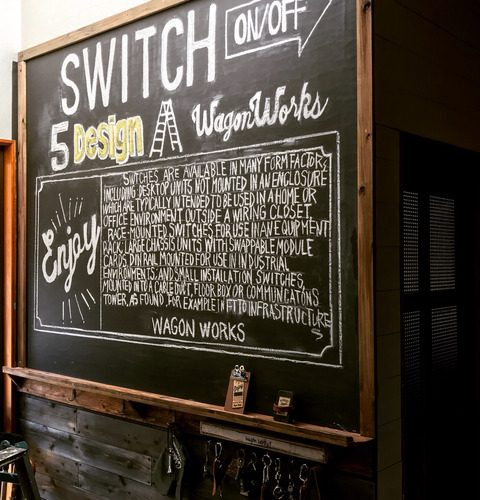 SWITCH ON/OFF
5 Design WagonWorks
Enjoy
SWITCHES ARE AVAILABLE IN MANY FORM FACTORS,
INCLUDING DESKTOP UNITS NOT MOUNTED IN AN ENCLOSURE
WHICH ARE TYPICALLY INTENDED TO BE USED IN A HOME OR
OFFICE ENVIRONMENT OUTSIDE A WIRING CLOSET,
RACE-MOUNTED SWITCHES FOR USE IN AN EQUIPMENT
RACK, LARGE CHASSIS UNITS WITH SWAPPABLE MODULE
CARDS, DIN RAIL MOUNTED FOR USE IN INDUSTRIAL
ENVIRONMENTS, AND SMALL INSTALLATION SWITCHES,
MOUNTED INTO A CABLE DUCT, FLOOR BOX OR COMMUNICATONS
TOWER, AS FOUND FOR EXAMPLE IN FTTD INFRASTRUCTURE
S
WAGON WORKS